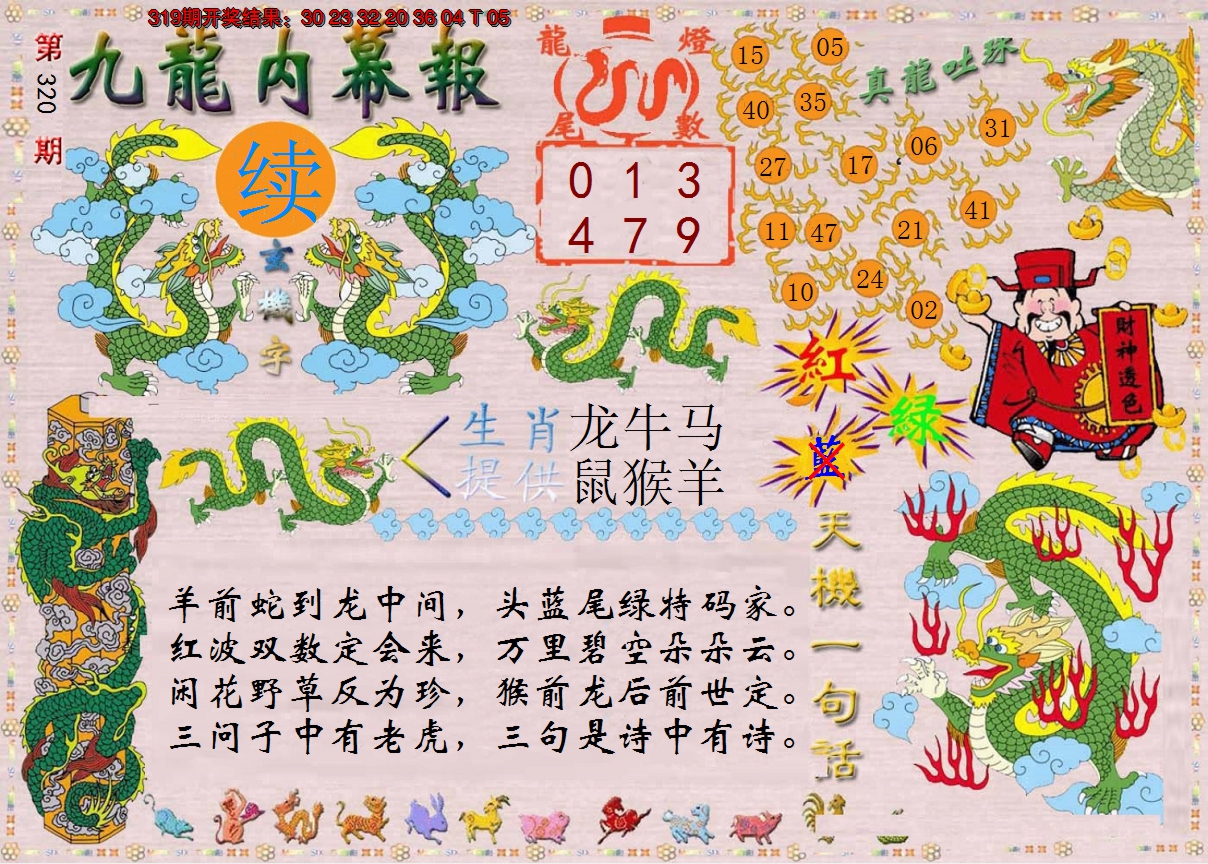 319期开奖结果：30 23 32 20 36 04 T 05
第320期
九龍内幕報
续
玄機字
龍燈
尾數
0 1 3
4 7 9
真龍吐珠
15
05
40
35
31
06
27
17
41
11
47
21
24
10
02
財神透色
紅
绿
蓝
生肖 龙牛马
提供 鼠猴羊
天機一句話
羊前蛇到龙中间，头蓝尾绿特码家。
红波双数定会来，万里碧空朵朵云。
闲花野草反为珍，猴前龙后前世定。
三问子中有老虎，三句是诗中有诗。